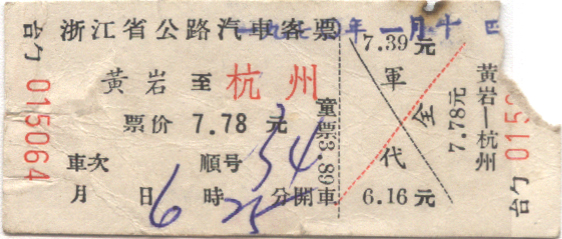 浙江省公路汽車客票
一九七〇年一月十四
黄岩 至 杭州
票价 7.78 元
車次 順号 34
月 日 6 時 25 分開車
童票3.89
台勹 015064
7.39 元
軍 全
代
6.16 元
7.78元
黄岩—杭州
台勹 015